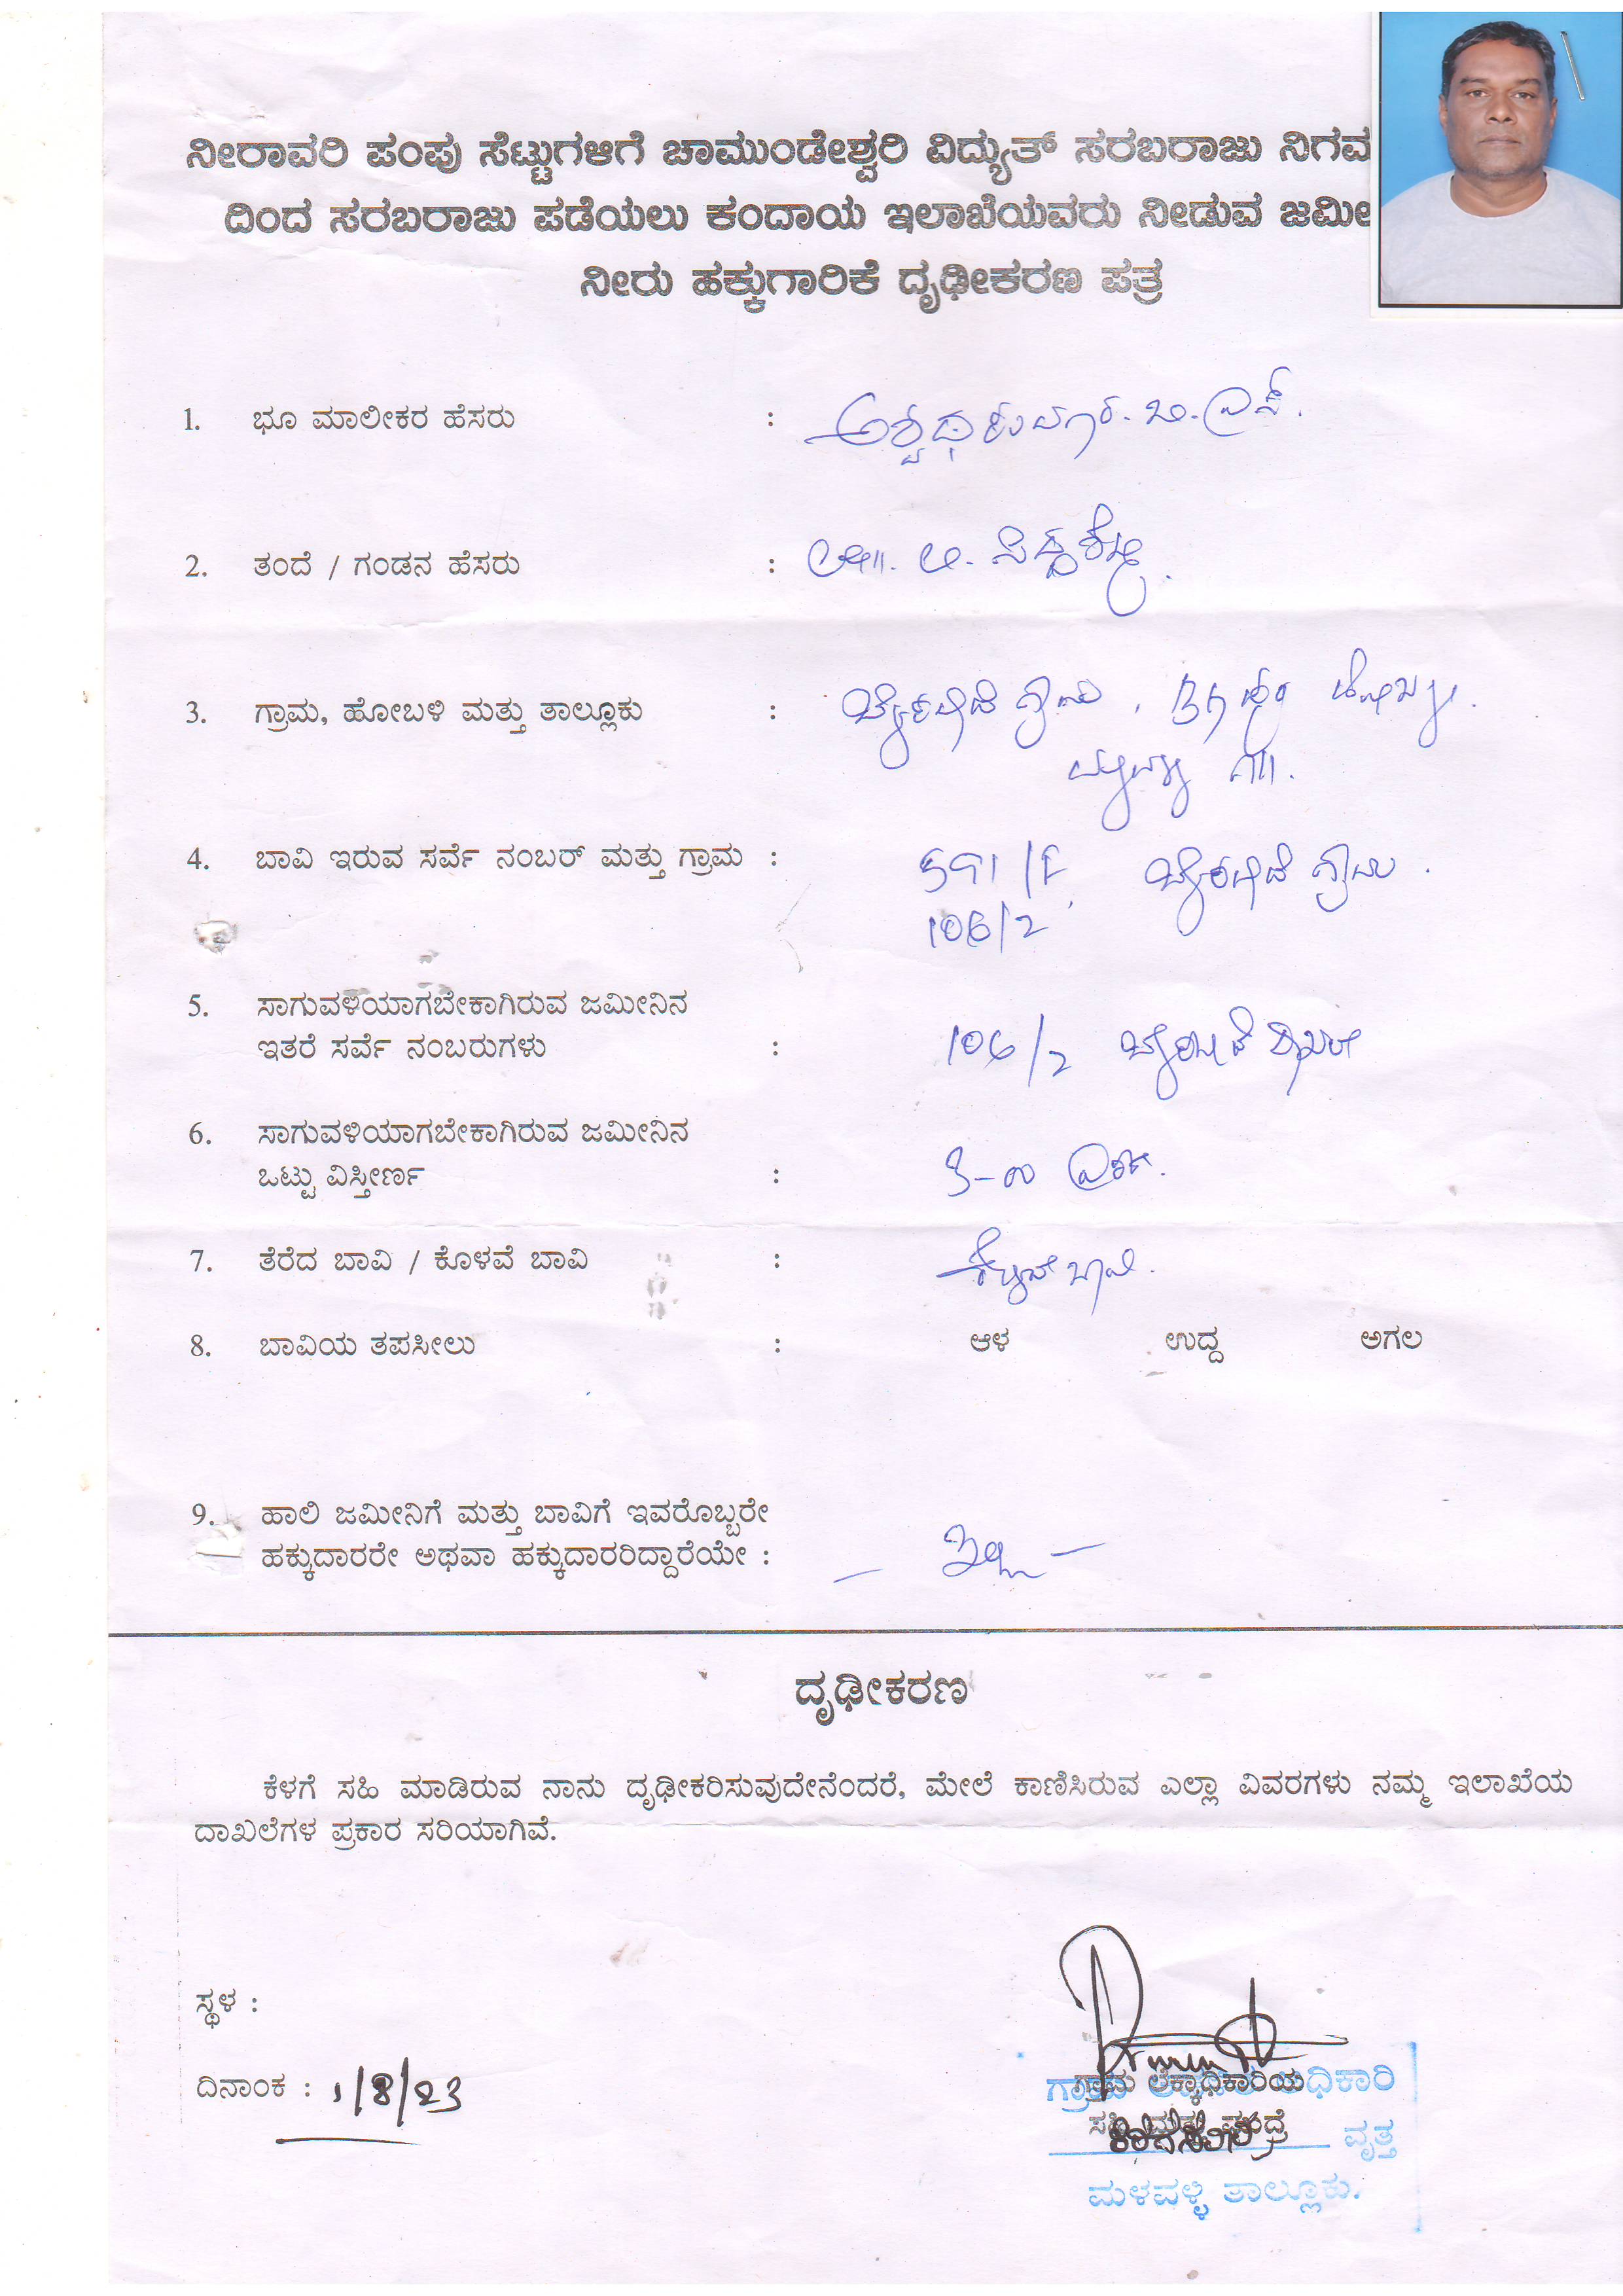 ನೀರಾವರಿ ಪಂಪು ಸೆಟ್ಟುಗಳಿಗೆ ಚಾಮುಂಡೇಶ್ವರಿ ವಿದ್ಯುತ್ ಸರಬರಾಜು ನಿಗಮ
ದಿಂದ ಸರಬರಾಜು ಪಡೆಯಲು ಕಂದಾಯ ಇಲಾಖೆಯವರು ನೀಡುವ ಜಮೀ
ನೀರು ಹಕ್ಕುಗಾರಿಕೆ ದೃಢೀಕರಣ ಪತ್ರ
1. ಭೂ ಮಾಲೀಕರ ಹೆಸರು : ಅಶ್ವಥಕುಮಾರ್. ಬಿ. ಎಸ್.
2. ತಂದೆ / ಗಂಡನ ಹೆಸರು :
3. ಗ್ರಾಮ, ಹೋಬಳಿ ಮತ್ತು ತಾಲ್ಲೂಕು : ಗ್ರಾಮ, ಹೋಬಳಿ.
4. ಬಾವಿ ಇರುವ ಸರ್ವೆ ನಂಬರ್ ಮತ್ತು ಗ್ರಾಮ : ಗ್ರಾಮ.
106/2
5. ಸಾಗುವಳಿಯಾಗಬೇಕಾಗಿರುವ ಜಮೀನಿನ
ಇತರೆ ಸರ್ವೆ ನಂಬರುಗಳು : 106/2
6. ಸಾಗುವಳಿಯಾಗಬೇಕಾಗಿರುವ ಜಮೀನಿನ
ಒಟ್ಟು ವಿಸ್ತೀರ್ಣ : 3-00 ಎಕರೆ.
7. ತೆರೆದ ಬಾವಿ / ಕೊಳವೆ ಬಾವಿ : ಕೊಳವೆ ಬಾವಿ.
8. ಬಾವಿಯ ತಪಸೀಲು : ಆಳ ಉದ್ದ ಅಗಲ
9. ಹಾಲಿ ಜಮೀನಿಗೆ ಮತ್ತು ಬಾವಿಗೆ ಇವರೊಬ್ಬರೇ
ಹಕ್ಕುದಾರರೇ ಅಥವಾ ಹಕ್ಕುದಾರರಿದ್ದಾರೆಯೇ : – ಇಲ್ಲ –
ದೃಢೀಕರಣ
ಕೆಳಗೆ ಸಹಿ ಮಾಡಿರುವ ನಾನು ದೃಢೀಕರಿಸುವುದೇನೆಂದರೆ, ಮೇಲೆ ಕಾಣಿಸಿರುವ ಎಲ್ಲಾ ವಿವರಗಳು ನಮ್ಮ ಇಲಾಖೆಯ
ದಾಖಲೆಗಳ ಪ್ರಕಾರ ಸರಿಯಾಗಿವೆ.
ಸ್ಥಳ :
ದಿನಾಂಕ : 1/8/23
ಗ್ರಾಮ ಲೆಕ್ಕಾಧಿಕಾರಿಯ
ಸಹಿ ಮತ್ತು ಮುದ್ರೆ
ವೃತ್ತ
ಮಳವಳ್ಳಿ ತಾಲ್ಲೂಕು.